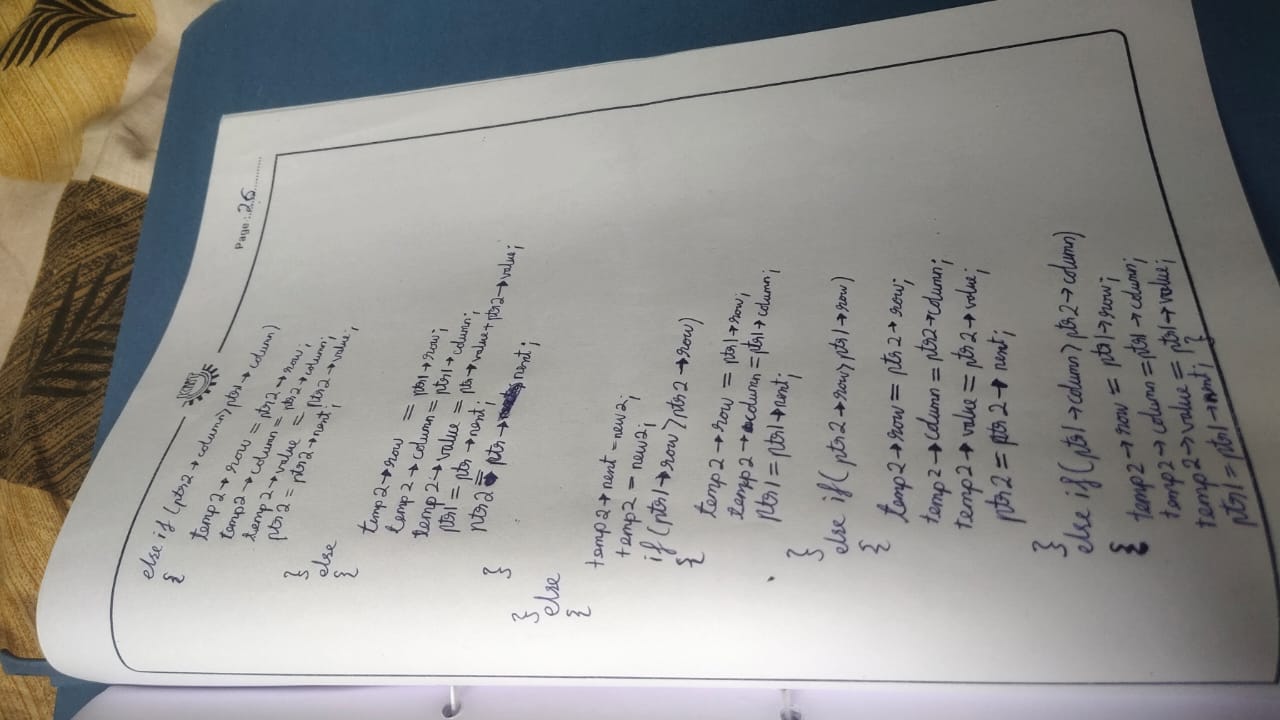 Page : 26
else if (ptr2→column>ptr1→column)
{
temp2→row = ptr2→row;
temp2→column = ptr2→column;
temp2→value = ptr2→value;
ptr2 = ptr2→next;
}
else
{
temp2→row = ptr1→row;
temp2→column = ptr1→column;
temp2→value = ptr→value+ptr2→value;
ptr1 = ptr→next;
ptr2 = ptr→next;
}
}
else
{
temp2→next = new2;
temp2 = new2;
if (ptr1→row>ptr2→row)
{
temp2→row = ptr1→row;
temp2→column = ptr1→column;
ptr1 = ptr1→next;
}
else if (ptr2→row>ptr1→row)
{
temp2→row = ptr2→row;
temp2→column = ptr2→column;
temp2→value = ptr2→value;
ptr2 = ptr2→next;
}
else if (ptr1→column>ptr2→column)
{
temp2→row = ptr1→row;
temp2→column = ptr1→column;
temp2→value = ptr1→value;
ptr1 = ptr1→next; }